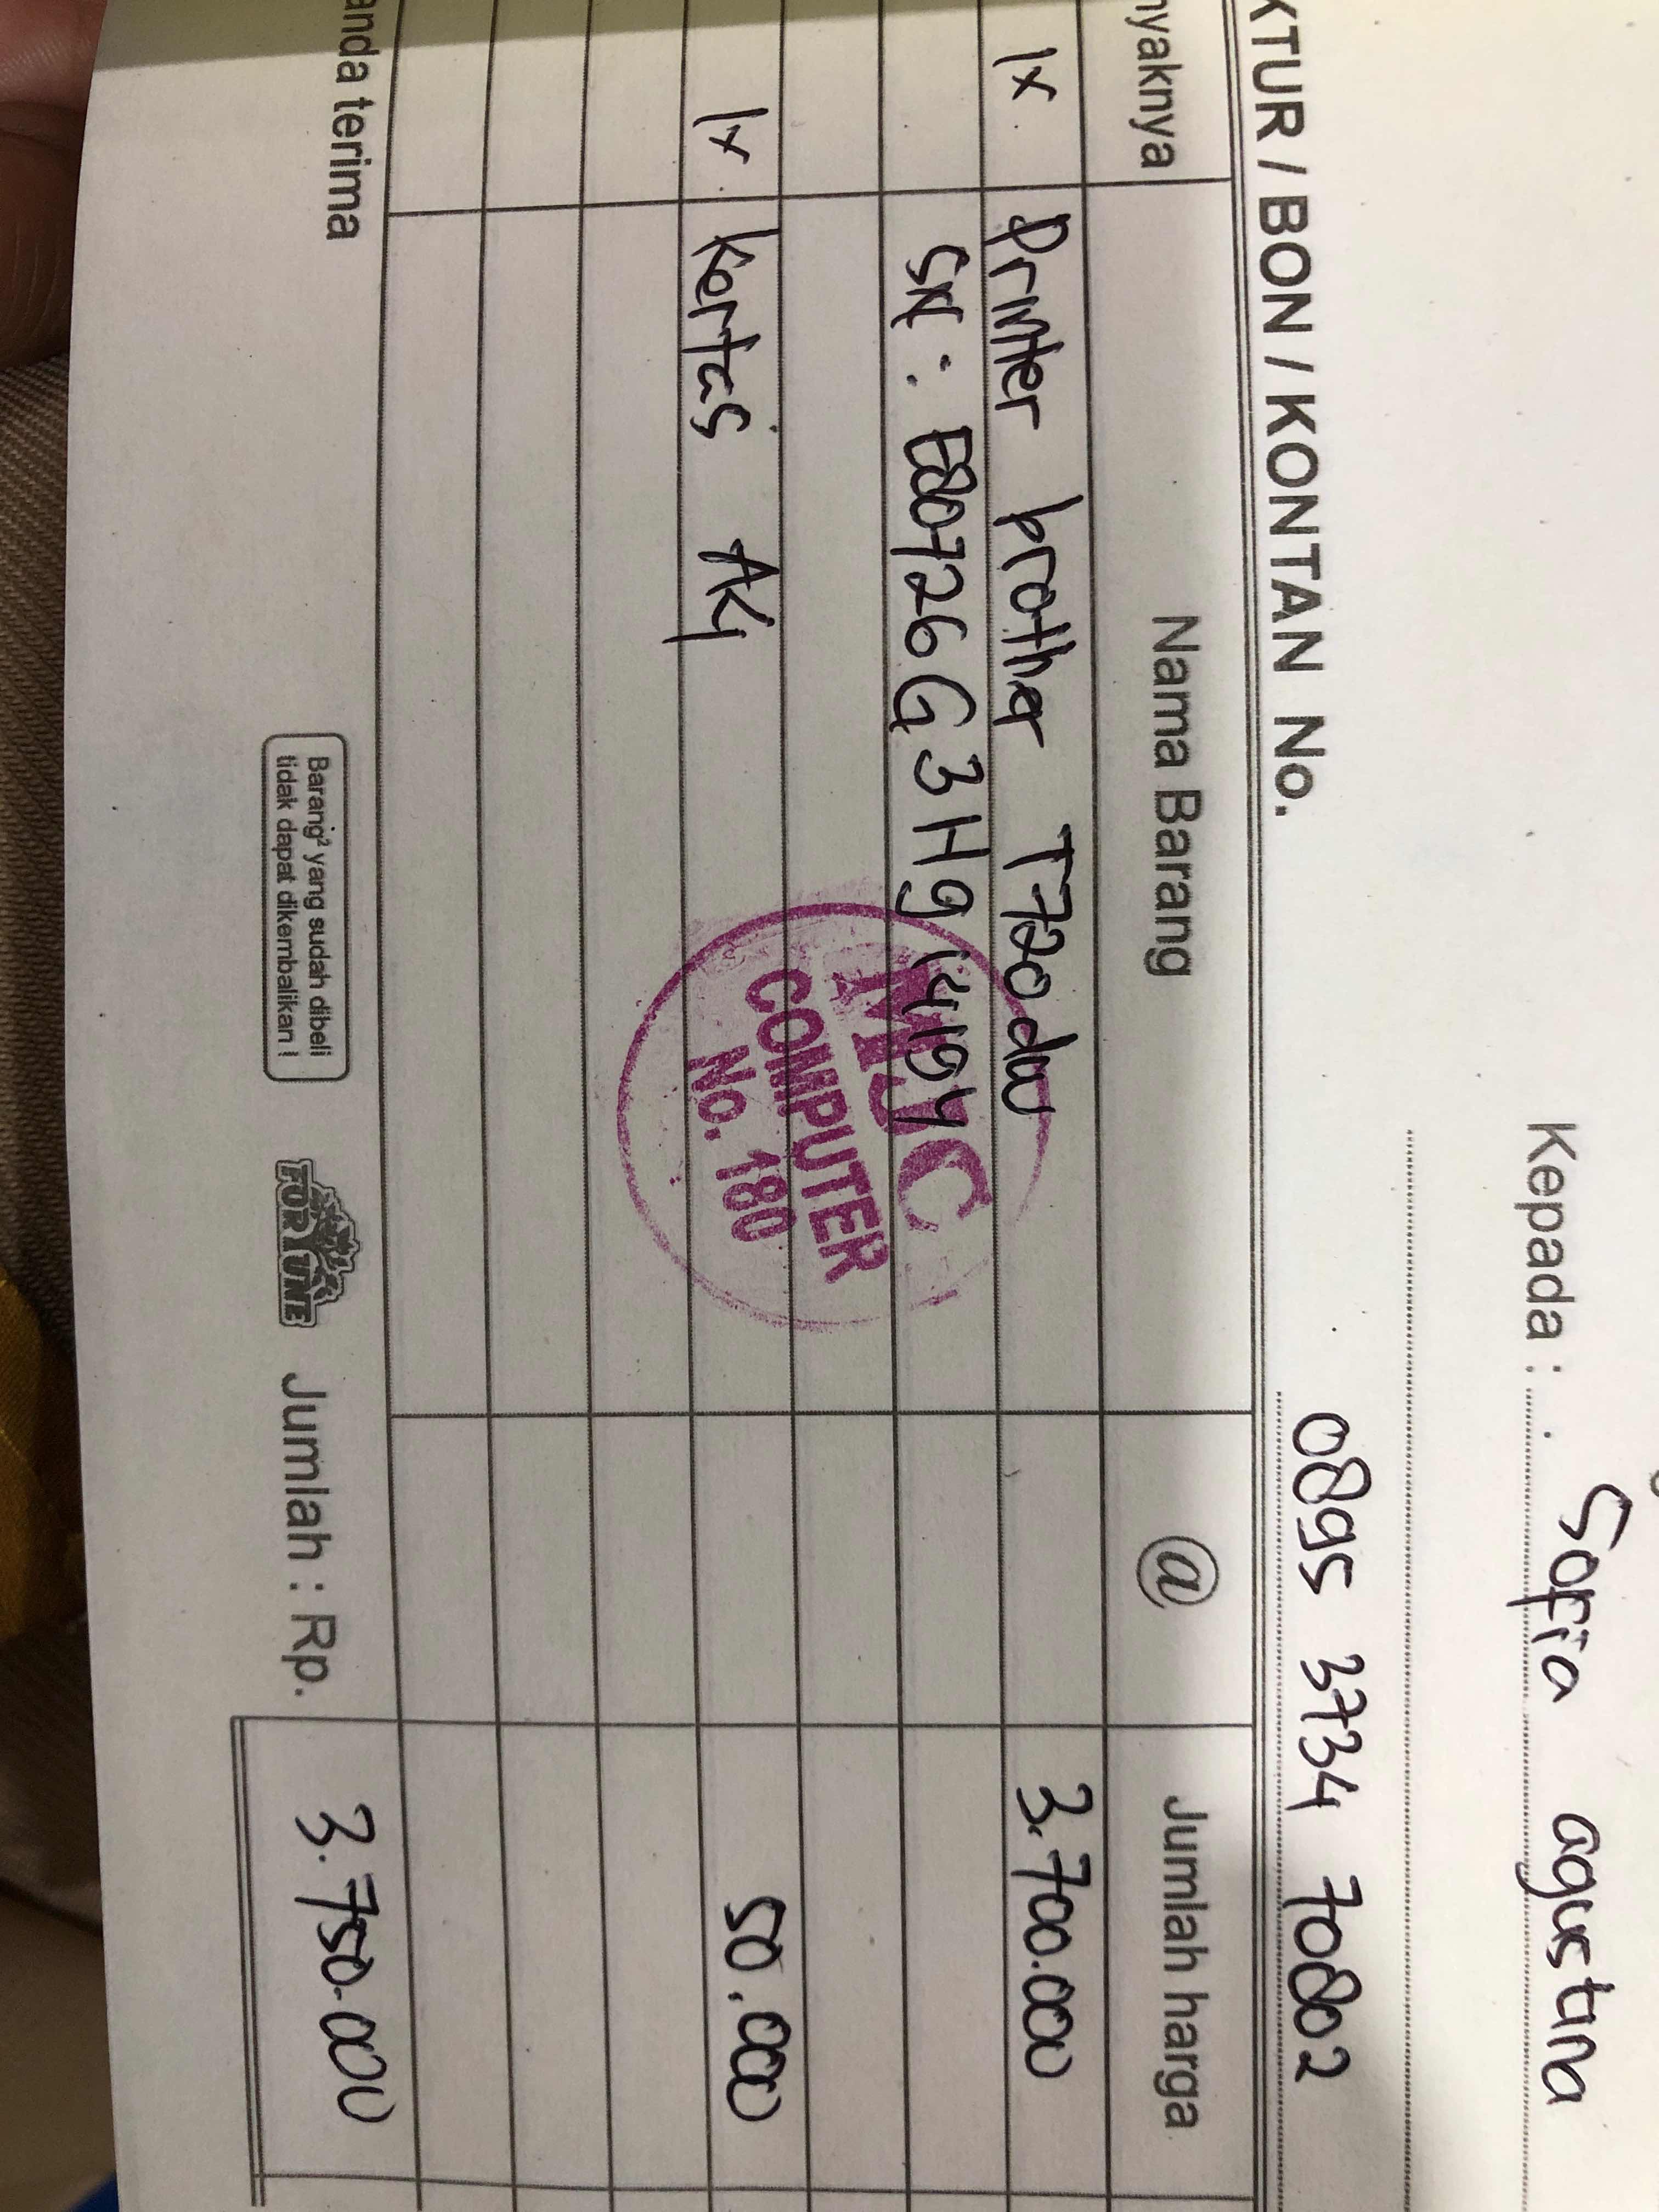 Kepada : Sofia agustina
0895 3734 70802
KTUR / BON / KONTAN No.
nyaknya Nama Barang @ Jumlah harga
1x Printer brother T720dw 3.700.000
SN : E80726G3H914104
1x Kertas A4 50.000
MJC
COMPUTER
No. 180
anda terima
Barang² yang sudah dibeli
tidak dapat dikembalikan !
FORTUNE
Jumlah : Rp. 3.750.000